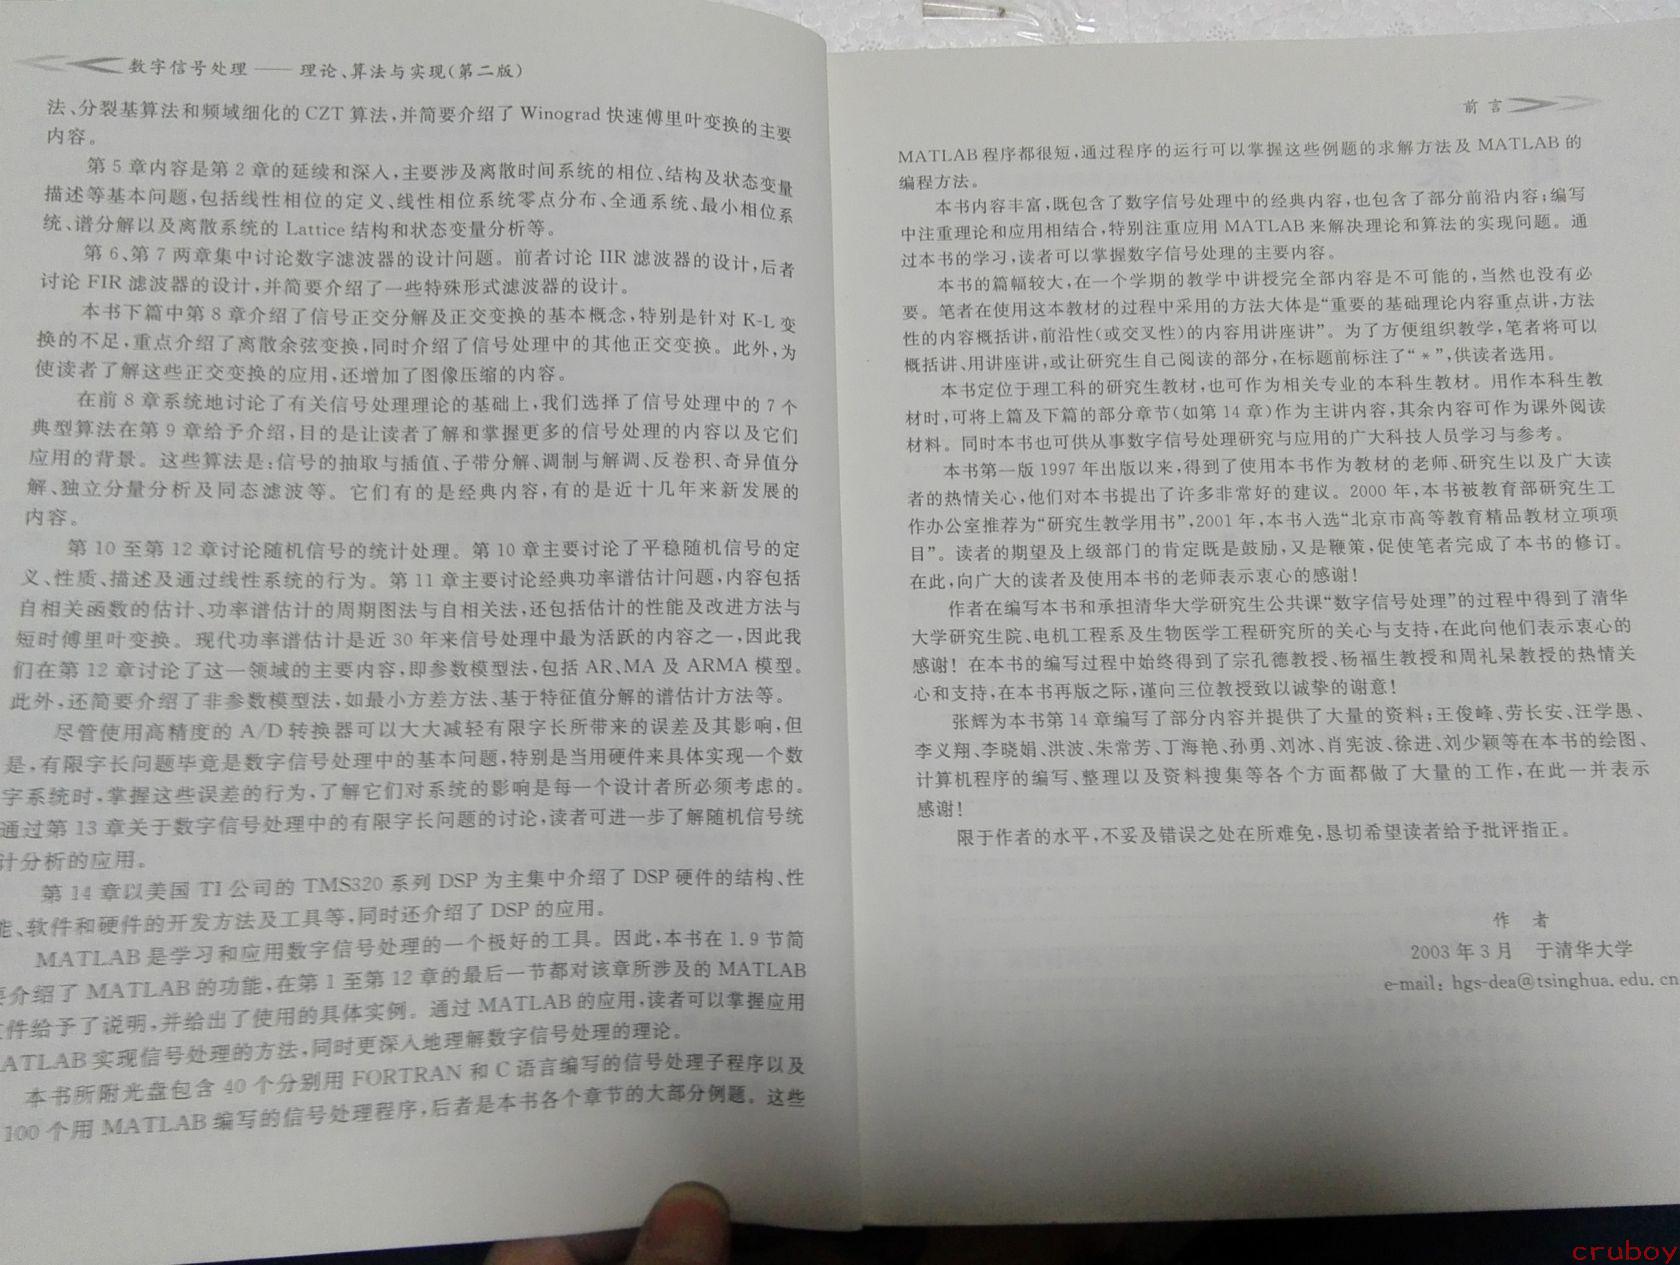 数字信号处理 —— 理论、算法与实现(第二版)
法、分裂基算法和频域细化的 CZT 算法,并简要介绍了 Winograd 快速傅里叶变换的主要
内容。
第 5 章内容是第 2 章的延续和深入,主要涉及离散时间系统的相位、结构及状态变量
描述等基本问题,包括线性相位的定义、线性相位系统零点分布、全通系统、最小相位系
统、谱分解以及离散系统的 Lattice 结构和状态变量分析等。
第 6、第 7 两章集中讨论数字滤波器的设计问题。前者讨论 IIR 滤波器的设计,后者
讨论 FIR 滤波器的设计,并简要介绍了一些特殊形式滤波器的设计。
本书下篇中第 8 章介绍了信号正交分解及正交变换的基本概念,特别是针对 K-L 变
换的不足,重点介绍了离散余弦变换,同时介绍了信号处理中的其他正交变换。此外,为
使读者了解这些正交变换的应用,还增加了图像压缩的内容。
在前 8 章系统地讨论了有关信号处理理论的基础上,我们选择了信号处理中的 7 个
典型算法在第 9 章给予介绍,目的是让读者了解和掌握更多的信号处理的内容以及它们
应用的背景。这些算法是:信号的抽取与插值、子带分解、调制与解调、反卷积、奇异值分
解、独立分量分析及同态滤波等。它们有的是经典内容,有的是近十几年来新发展的
内容。
第 10 至第 12 章讨论随机信号的统计处理。第 10 章主要讨论了平稳随机信号的定
义、性质、描述及通过线性系统的行为。第 11 章主要讨论经典功率谱估计问题,内容包括
自相关函数的估计、功率谱估计的周期图法与自相关法,还包括估计的性能及改进方法与
短时傅里叶变换。现代功率谱估计是近 30 年来信号处理中最为活跃的内容之一,因此我
们在第 12 章讨论了这一领域的主要内容,即参数模型法,包括 AR、MA 及 ARMA 模型。
此外,还简要介绍了非参数模型法,如最小方差方法、基于特征值分解的谱估计方法等。
尽管使用高精度的 A/D 转换器可以大大减轻有限字长所带来的误差及其影响,但
是,有限字长问题毕竟是数字信号处理中的基本问题,特别是当用硬件来具体实现一个数
字系统时,掌握这些误差的行为,了解它们对系统的影响是每一个设计者所必须考虑的。
通过第 13 章关于数字信号处理中的有限字长问题的讨论,读者可进一步了解随机信号统
计分析的应用。
第 14 章以美国 TI 公司的 TMS320 系列 DSP 为主集中介绍了 DSP 硬件的结构、性
能、软件和硬件的开发方法及工具等,同时还介绍了 DSP 的应用。
MATLAB 是学习和应用数字信号处理的一个极好的工具。因此,本书在 1.9 节简
要介绍了 MATLAB 的功能,在第 1 至第 12 章的最后一节都对该章所涉及的 MATLAB
文件给予了说明,并给出了使用的具体实例。通过 MATLAB 的应用,读者可以掌握应用
MATLAB 实现信号处理的方法,同时更深入地理解数字信号处理的理论。
本书所附光盘包含 40 个分别用 FORTRAN 和 C 语言编写的信号处理子程序以及
100 个用 MATLAB 编写的信号处理程序,后者是本书各个章节的大部分例题。这些
前 言
MATLAB 程序都很短,通过程序的运行可以掌握这些例题的求解方法及 MATLAB 的
编程方法。
本书内容丰富,既包含了数字信号处理中的经典内容,也包含了部分前沿内容;编写
中注重理论和应用相结合,特别注重应用 MATLAB 来解决理论和算法的实现问题。通
过本书的学习,读者可以掌握数字信号处理的主要内容。
本书的篇幅较大,在一个学期的教学中讲授完全部内容是不可能的,当然也没有必
要。笔者在使用这本教材的过程中采用的方法大体是“重要的基础理论内容重点讲,方法
性的内容概括讲,前沿性(或交叉性)的内容用讲座讲”。为了方便组织教学,笔者将可以
概括讲、用讲座讲,或让研究生自己阅读的部分,在标题前标注了“*”,供读者选用。
本书定位于理工科的研究生教材,也可作为相关专业的本科生教材。用作本科生教
材时,可将上篇及下篇的部分章节(如第 14 章)作为主讲内容,其余内容可作为课外阅读
材料。同时本书也可供从事数字信号处理研究与应用的广大科技人员学习与参考。
本书第一版 1997 年出版以来,得到了使用本书作为教材的老师、研究生以及广大读
者的热情关心,他们对本书提出了许多非常好的建议。2000 年,本书被教育部研究生工
作办公室推荐为“研究生教学用书”,2001 年,本书入选“北京市高等教育精品教材立项项
目”。读者的期望及上级部门的肯定既是鼓励,又是鞭策,促使笔者完成了本书的修订。
在此,向广大的读者及使用本书的老师表示衷心的感谢!
作者在编写本书和承担清华大学研究生公共课“数字信号处理”的过程中得到了清华
大学研究生院、电机工程系及生物医学工程研究所的关心与支持,在此向他们表示衷心的
感谢! 在本书的编写过程中始终得到了宗孔德教授、杨福生教授和周礼杲教授的热情关
心和支持,在本书再版之际,谨向三位教授致以诚挚的谢意!
张辉为本书第 14 章编写了部分内容并提供了大量的资料;王俊峰、劳长安、汪学愚、
李义翔、李晓娟、洪波、朱常芳、丁海艳、孙勇、刘冰、肖宪波、徐进、刘少颖等在本书的绘图、
计算机程序的编写、整理以及资料搜集等各个方面都做了大量的工作,在此一并表示
感谢!
限于作者的水平,不妥及错误之处在所难免,恳切希望读者给予批评指正。
作 者
2003 年 3 月 于清华大学
e-mail: hgs-dea@tsinghua.edu.cn
cruboy